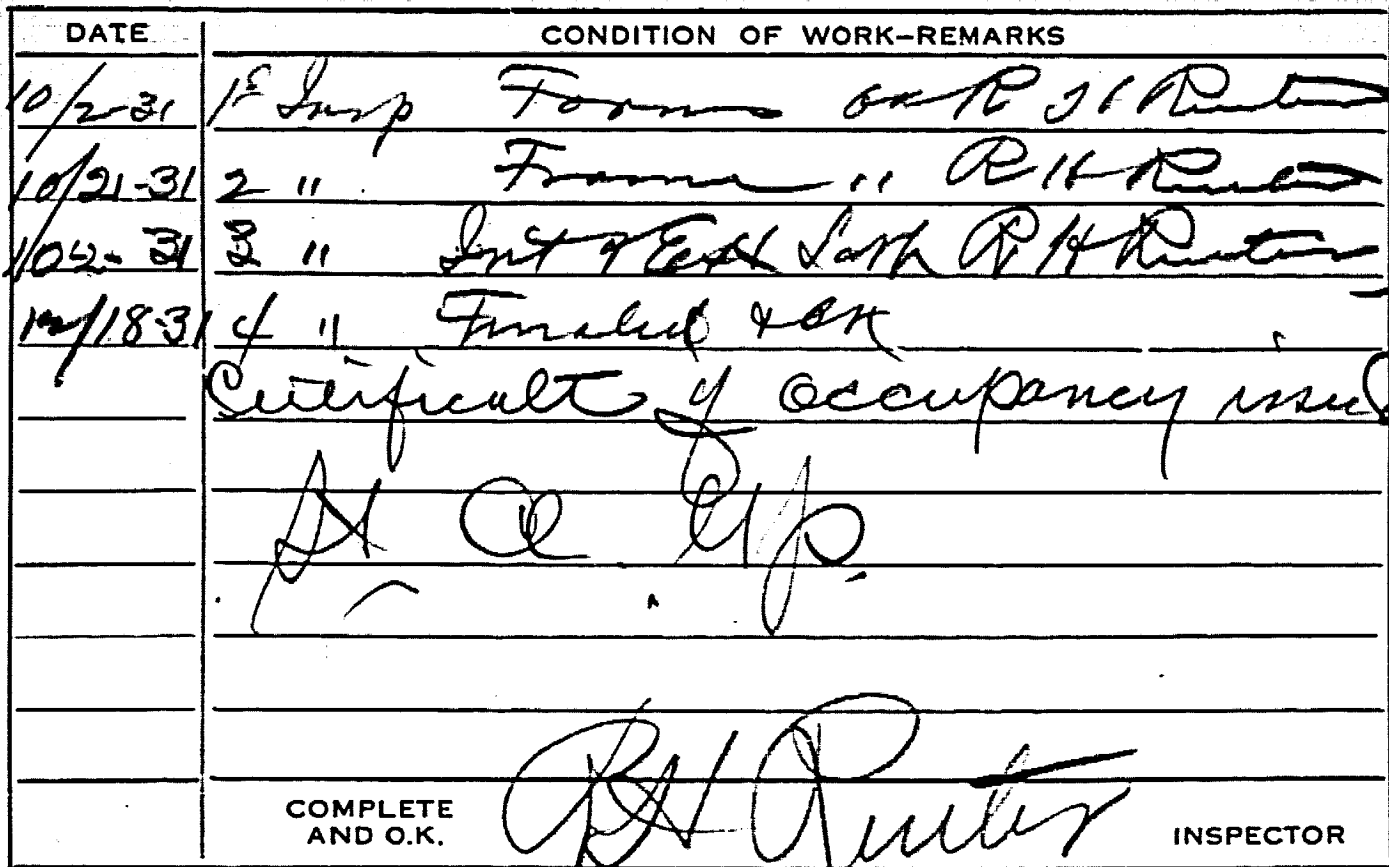 DATE CONDITION OF WORK–REMARKS
10/2-31 1st Insp Forms ok R H Reuter
10/21-31 2 " Frame " R H Reuter
3 " Int & Ext Lath R H Reuter
12/18-31 4 " Finaled & OK
Certificate of occupancy issued
R H Reuter
COMPLETE
AND O.K. INSPECTOR